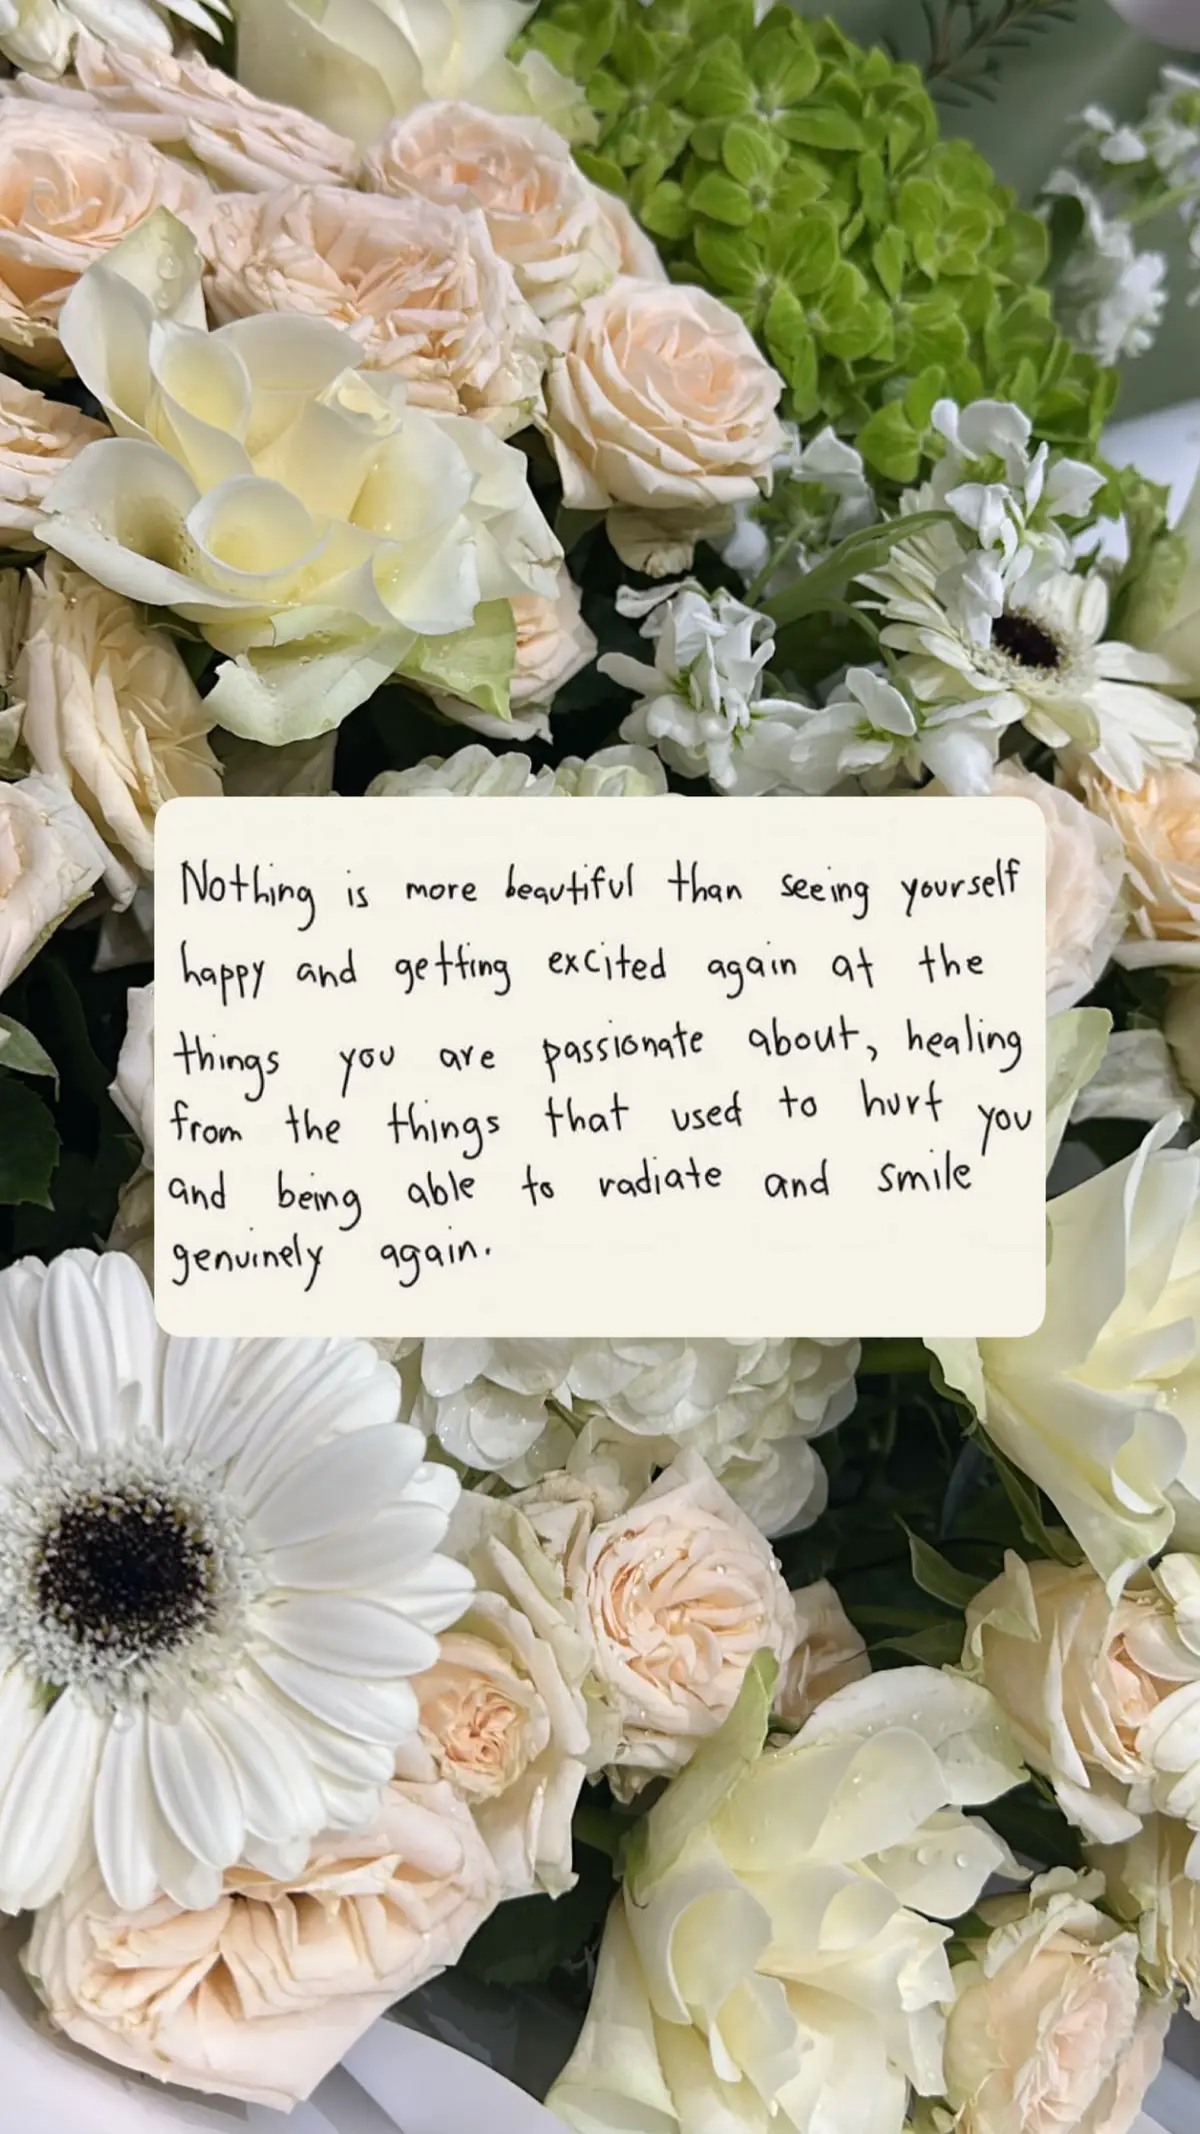 Nothing is more beautiful than seeing yourself
happy and getting excited again at the
things you are passionate about, healing
from the things that used to hurt you
and being able to radiate and smile
genuinely again.